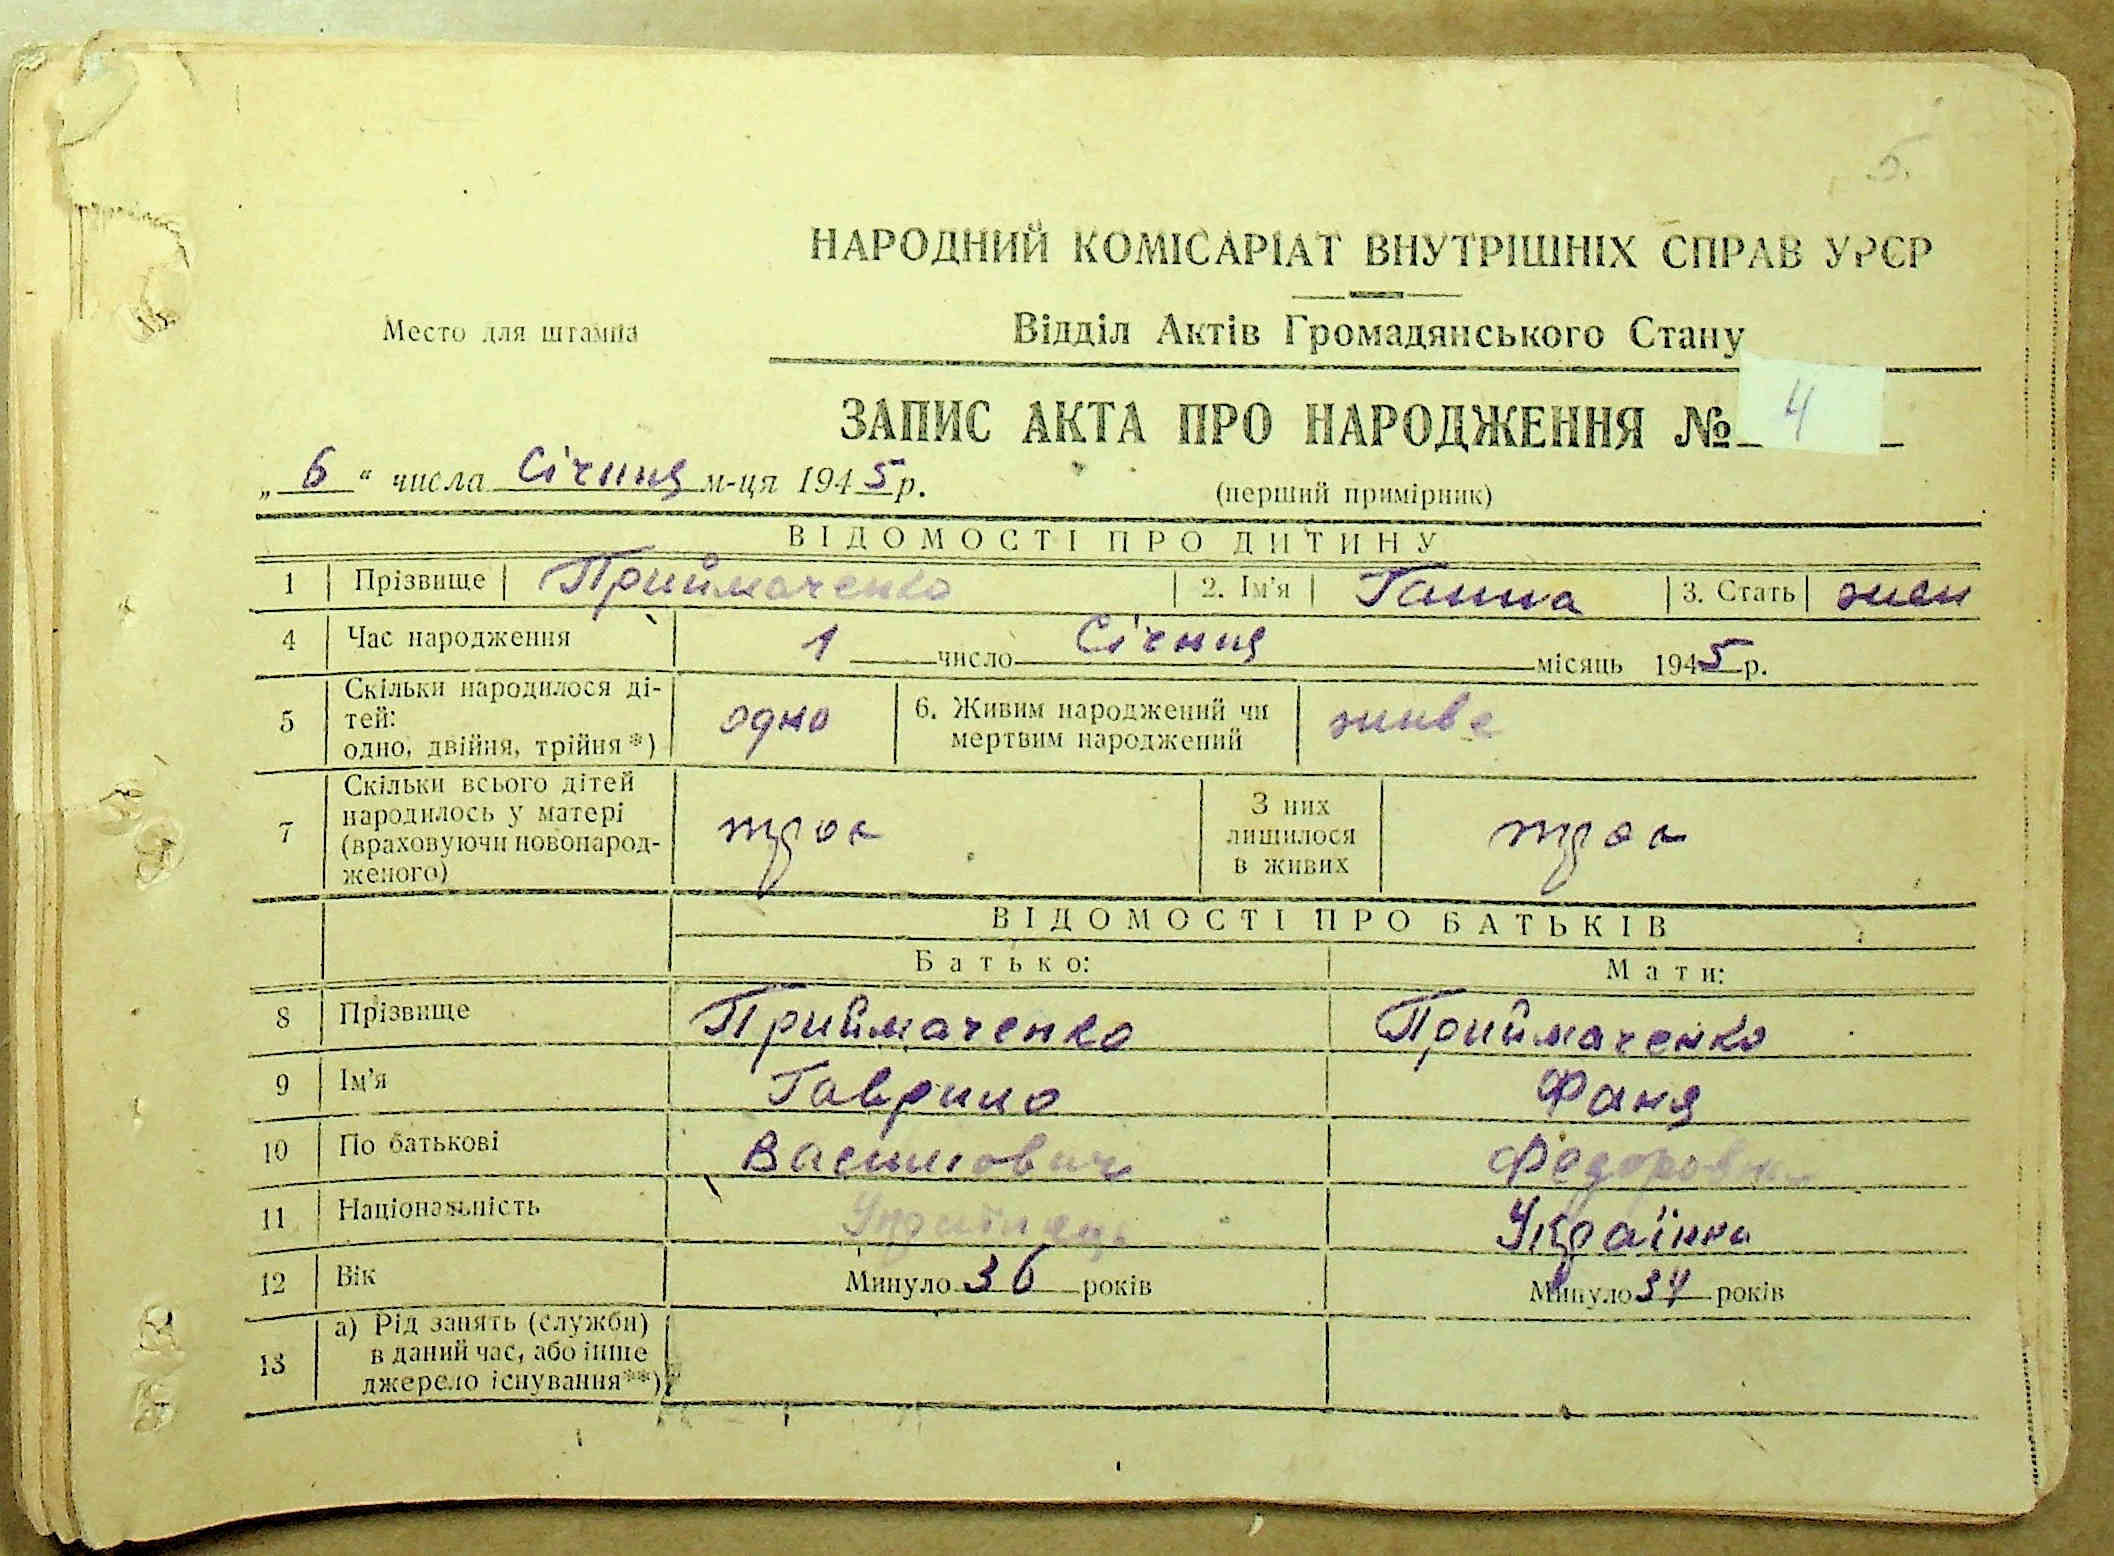 5.
НАРОДНИЙ КОМІСАРІАТ ВНУТРІШНІХ СПРАВ УРСР
Место для штампа
Відділ Актів Громадянського Стану
ЗАПИС АКТА ПРО НАРОДЖЕННЯ № 4
„ 6 “ числа Січння м-ця 1945 р.
(перший примірник)
ВІДОМОСТІ ПРО ДИТИНУ
1 Прізвище Приймаченко 2. Ім'я Ганна 3. Стать жен
4 Час народження 1 число Січння місяць 1945 р.
5 Скільки народилося ді-
тей:
одно, двійня, трійня*) одно 6. Живим народжений чи
мертвим народжений живе
7 Скільки всього дітей
народилось у матері
(враховуючи новонарод-
женого) троє З них
лишилося
в живих троє
ВІДОМОСТІ ПРО БАТЬКІВ
Батько: Мати:
8 Прізвище Приймаченко Приймаченко
9 Ім'я Гаврило Фаня
10 По батькові Василович Федоровна
11 Національність Українець Українка
12 Вік Минуло 36 років Минуло 34 років
13 а) Рід занять (служби)
в даний час, або інше
джерело існування**)